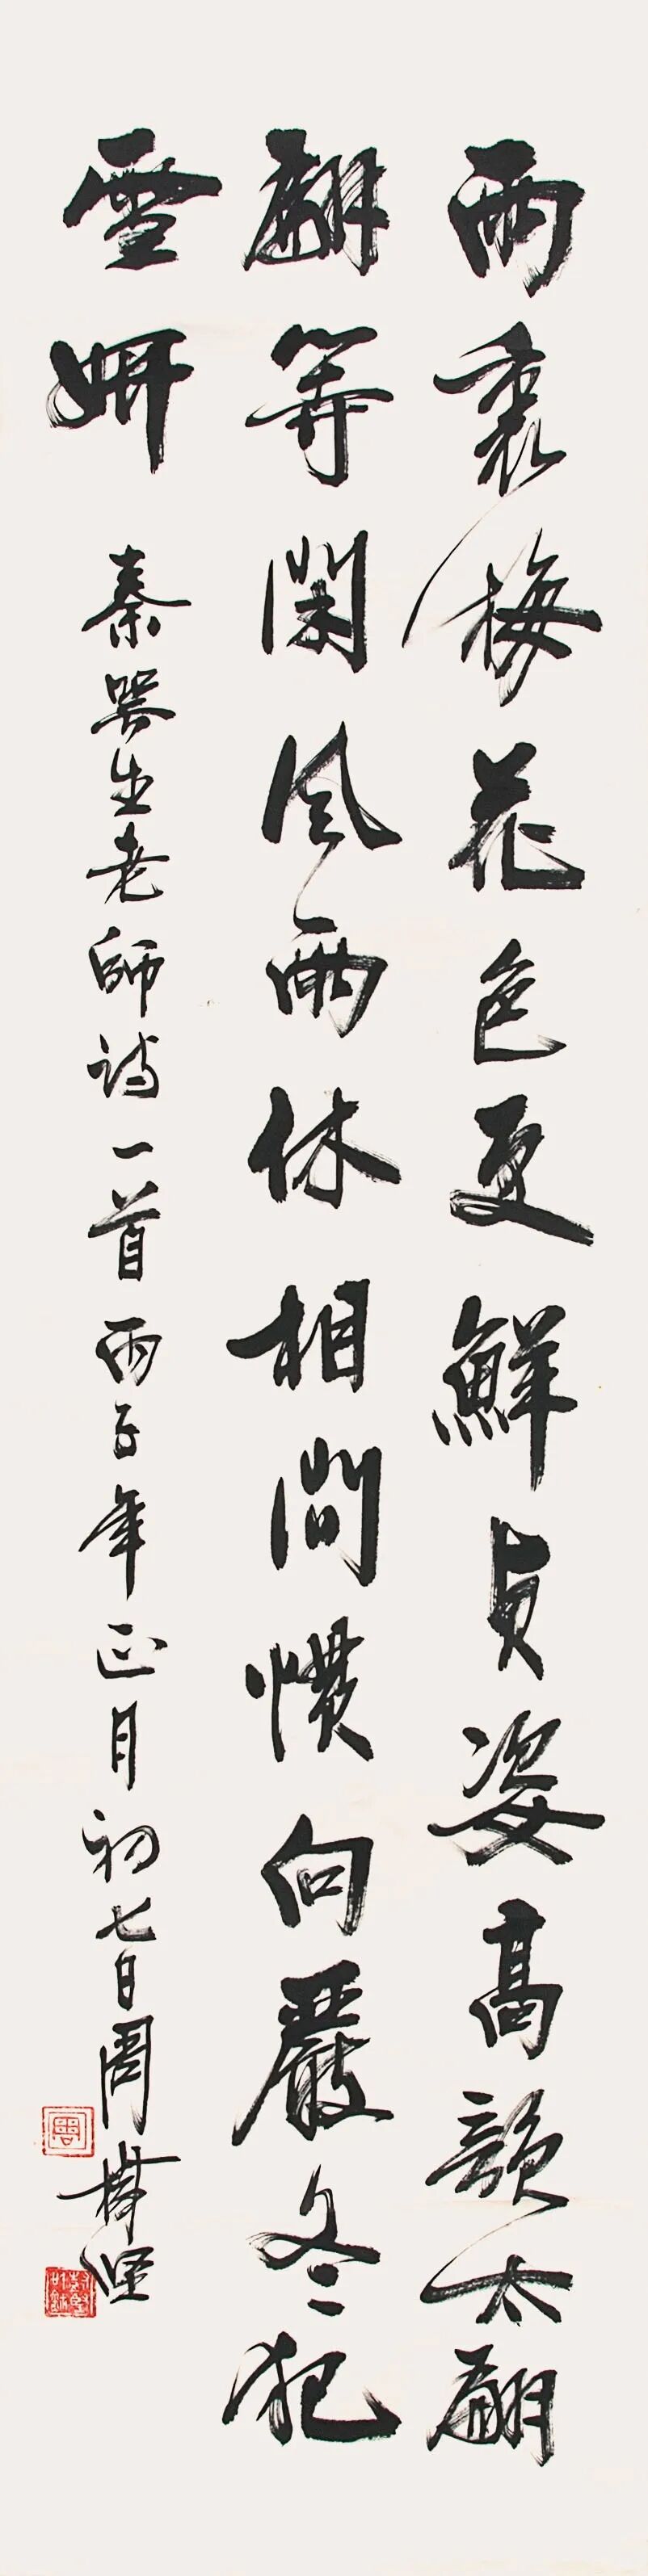 雨裏梅花色更鮮貞姿高韻太翩
翩等閑風雨休相問慣向嚴冬犯
雪妍 秦咢生老師詩一首丙子年正月初七日周樹坚